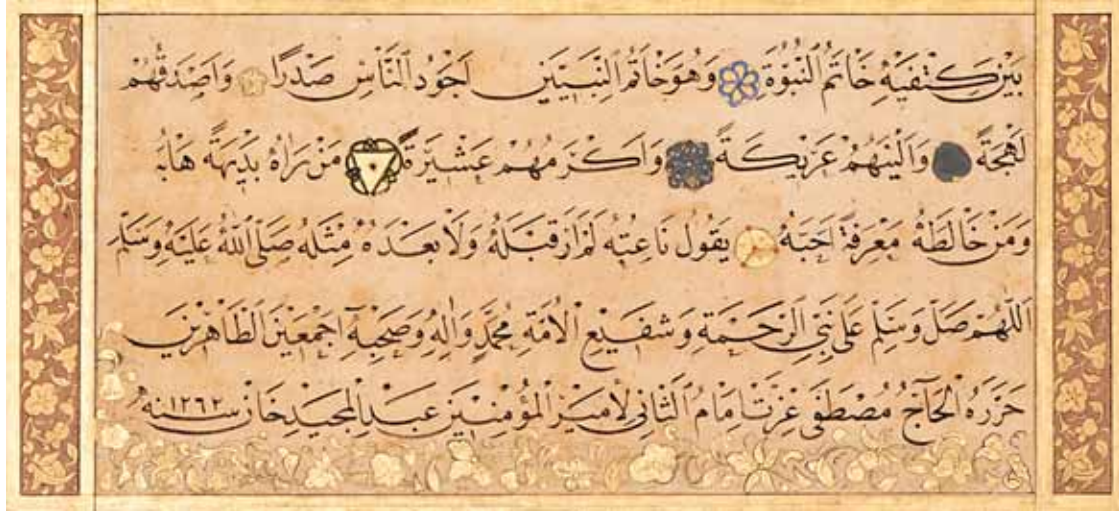 بَيْنَ كَتِفَيْهِ خَاتَمُ النُّبُوَّةِ وَهُوَ خَاتَمُ النَّبِيّٖينَ اَجْوَدُ النَّاسِ صَدْرًا وَاَصْدَقُهُمْ
لَهْجَةً وَاَلْيَنُهُمْ عَرِيكَةً وَاَكْرَمُهُمْ عَشِيرَةً مَنْ رَاٰهُ بَدِيهَةً هَابَهُ
وَمَنْ خَالَطَهُ مَعْرِفَةً اَحَبَّهُ يَقُولُ نَاعِتُهُ لَمْ اَرَ قَبْلَهُ وَلَا بَعْدَهُ مِثْلَهُ صَلَّى اللّٰهُ عَلَيْهِ وَسَلَّمَ
اَللّٰهُمَّ صَلِّ وَسَلِّمْ عَلٰى نَبِيِّ الرَّحْمَةِ وَشَفِيعِ الْاُمَّةِ مُحَمَّدٍ وَاٰلِهِ وَصَحْبِهِ اَجْمَعِينَ الطَّاهِرِينَ
حَرَّرَهُ الْحَاجُّ مُصْطَفٰى عِزَّتْ اِمَامُ الثَّانِي لِاَمِيرِ الْمُؤْمِنِينَ عَبْدِ الْمَجِيدِ خَانْ سنه ١٢٦٢